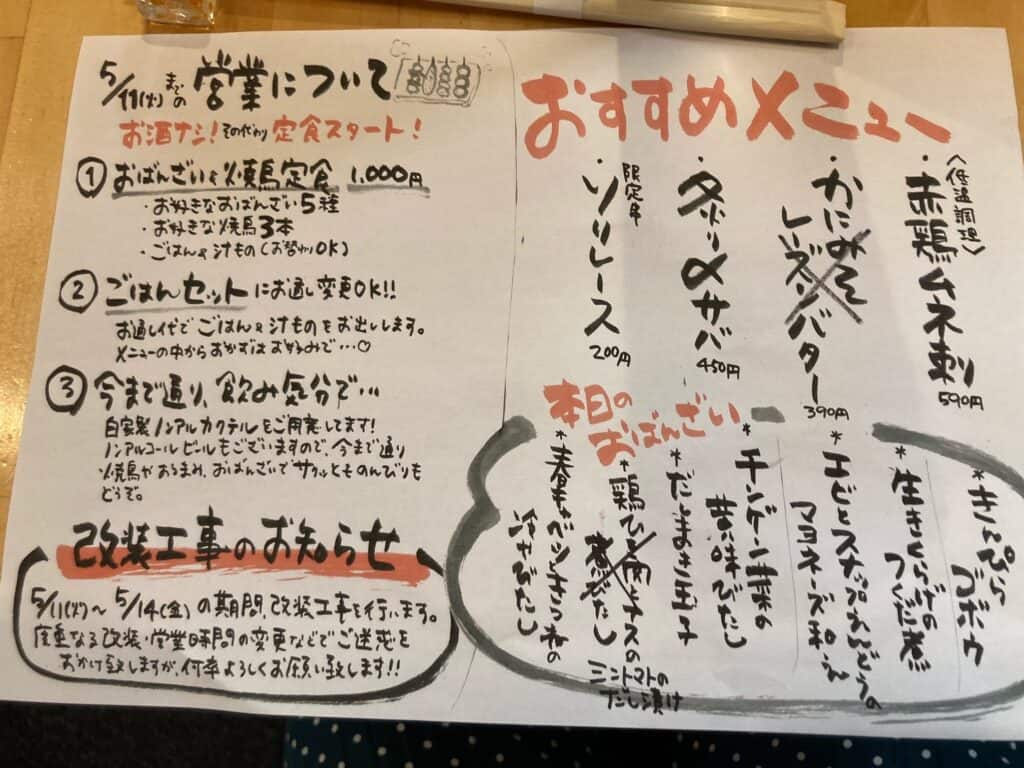 5/11(火)までの営業について
お酒ナシ!その代わり定食スタート!
① おばんざい&焼鳥定食 1,000円
・お好きなおばんざい5種
・お好きな焼鳥3本
・ごはん&汁もの(お替りOK)
② ごはんセットにお通し変更OK!!
お通し代でごはん&汁ものをお出しします。
メニューの中からおかずはお好みで…♡
③ 今まで通り、飲み気分で…
自家製ノンアルカクテルをご用意してます!
ノンアルコールビールもございますので、今まで通り
焼鳥がおつまみ、おばんざいでサクッとものんびりも
どうぞ。
改装工事のお知らせ
5/11(火)〜5/14(金)の期間、改装工事を行います。
度重なる改装・営業時間の変更などでご迷惑を
おかけ致しますが、何卒よろしくお願い致します!!
おすすめメニュー
・赤鶏ムネ刺
〈低温調理〉
590円
・かにみそ
レーズンバター
390円
サバ
450円
・ソリレース
限定串
200円
本日の
おばんざい
*きんぴら
ゴボウ
*生きくらげの
つくだ煮
*エビとスナップえんどうの
マヨネーズ
*チンゲン菜の
煮びたし
*だしまき玉子
*鶏ひき肉とナスの
ミニトマトの
だし漬け
*春キャベツとさつま